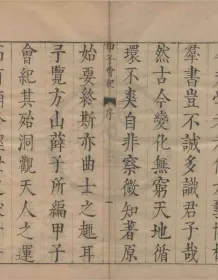 羣書豈不誠多識君子哉
然古今變化無窮天地循
環不爽自非察微知著原
甲子會紀 序
始要終斯亦曲士之趣耳
予覽方山薛子所編甲子
會紀其始洞觀天人之運